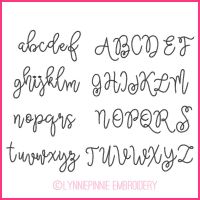 abcdef ABCDEF
ghijklm GHIJKLM
nopqrs NOPQRS
tuvwxyz TUVWXYZ
©LYNNEPINNIE EMBROIDERY